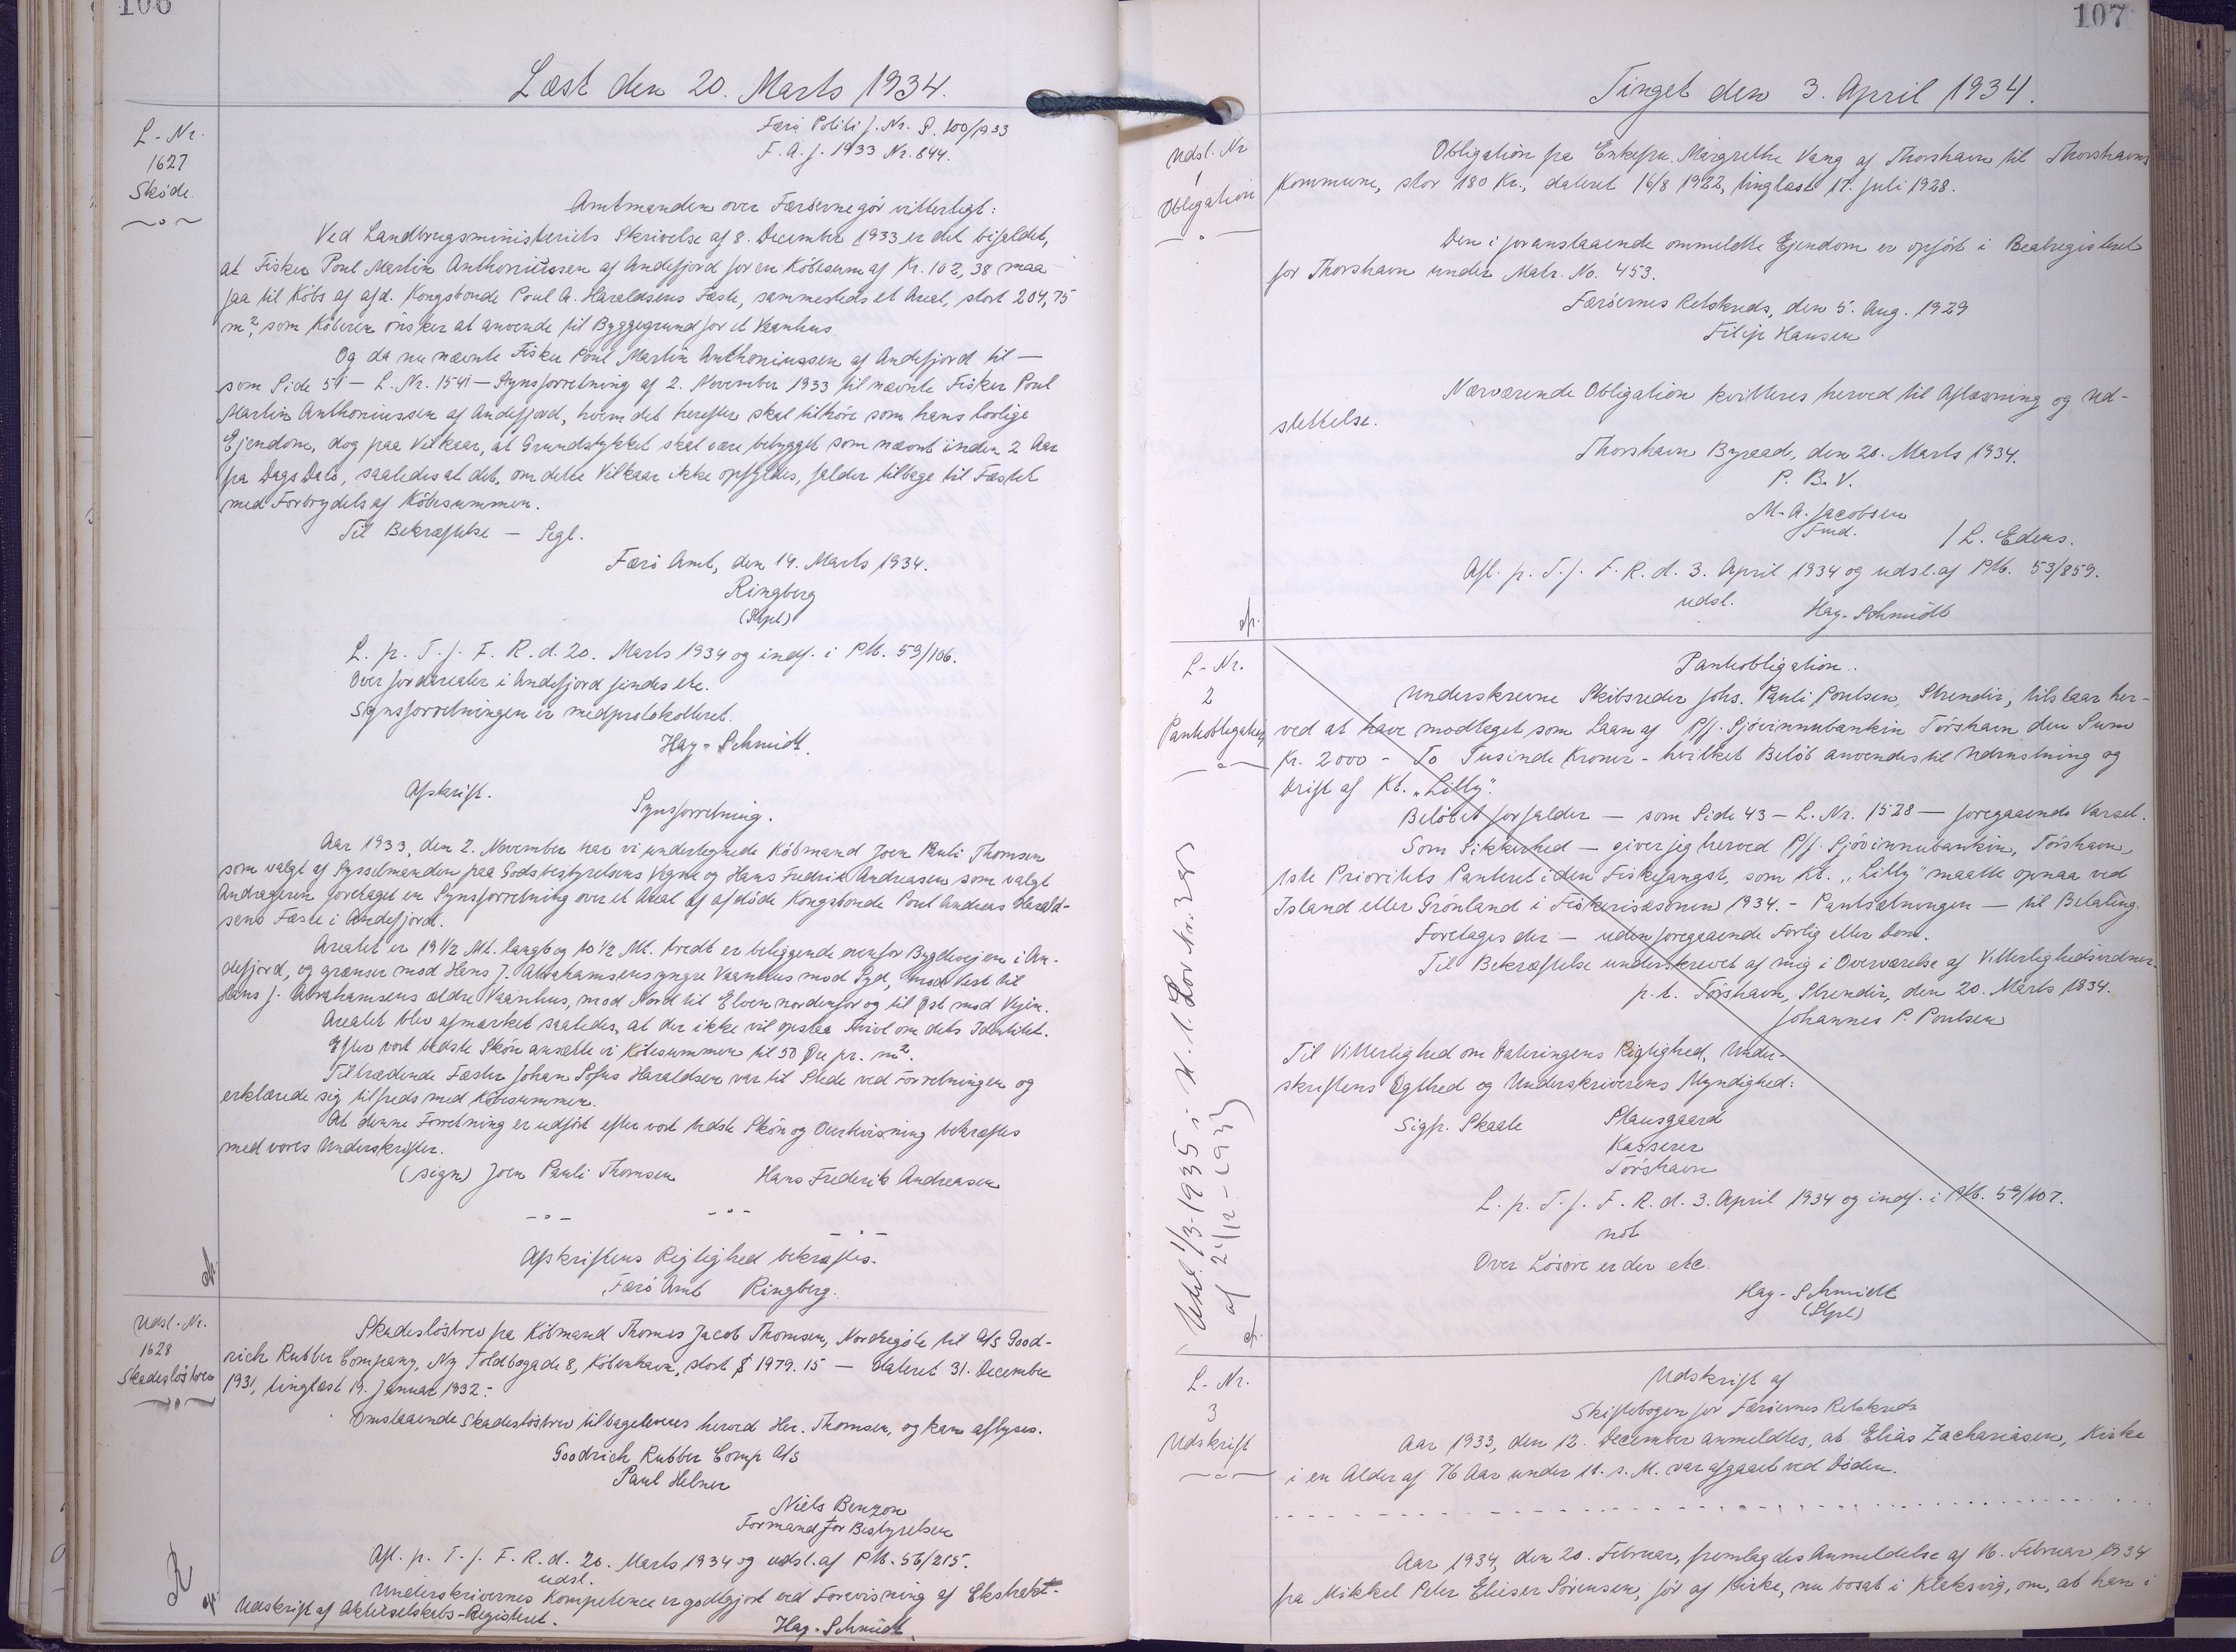 106
Læst den 20. Marts 1934.
L-Nr.
1627
Skøde
Færø Politi J. Nr. P. 100/1933
F. A. J. 1933 Nr. 844.
Amtmanden over Færøerne gør vitterligt:
Ved Landbrugsministeriets Skrivelse af 8. December 1933 er det bifaldet,
at Fisker Poul Martin Anthoniussen af Andefjord for en Købesum af Kr. 102,38 maa
faa til Købs af afd. Kongsbonde Poul A. Haraldsens Fæste, sammesteds et Areal, stort 204,75
m², som Køberen ønsker at anvende til Byggegrund for et Vaanhus.
Og da nu nævnte Fisker Poul Martin Anthoniussen af Andefjord til —
som Side 51 — L. Nr. 1541 — Synsforretning af 2. November 1933 til nævnte Fisker Poul
Martin Anthoniussen af Andefjord, hvem det herefter skal tilhøre som hans lovlige
Ejendom, dog paa Vilkaar, at Grundstykket skal være bebygget som nævnt inden 2 Aar
fra Dags Dato, saaledes at det, om dette Vilkaar ikke opfyldes, falder tilbage til Fæstet
med Forbrydelse af Købesummen.
Til Bekræftelse — Segl.
Færø Amt, den 14. Marts 1934.
Ringberg
(Stpl)
L. p. T. f. F. R. d. 20. Marts 1934 og indf. i PM. 59/106.
Over jordarealer i Andefjord findes etc.
Synsforretningen er medprotokolleret.
Hay-Schmidt.
Afskrift.
Synsforretning.
Aar 1933, den 2. November har vi undertegnede Købmand Joen Pauli Thomsen
som valgt af Sysselmanden paa Godsbestyrelsens Vegne og Hans Fredrik Andreasen som valgt
Andrageren foretaget en Synsforretning over et Areal af afdøde Kongsbonde Poul Andreas Harald-
sens Fæste i Andefjord.
Arealet er 19½ Mt. langt og 10½ Mt. bredt er beliggende ovenfor Bygdevejen i An-
defjord, og grænser mod Hans J. Abrahamsens yngre Vaanhus mod Syd, mod Vest til
Hans J. Abrahamsens ældre Vaanhus, mod Nord til Elven nordenfor og til Øst mod Vejen.
Arealet blev afmærket saaledes, at der ikke vil opstaa Tvivl om dets Identitet.
Efter vort bedste Skøn ansætte vi Købesummen til 50 Øre pr. m².
Tiltrædende Fæster Johan Sofus Haraldsen var til Stede ved Forretningen og
erklærede sig tilfreds med Købesummen.
At denne Forretning er udført efter vort bedste Skøn og Overbevisning bekræftes
med vores Underskrifter.
(sign) Joen Pauli Thomsen Hans Frederik Andreasen
Afskriftens Rigtighed bekræftes.
Færø Amt Ringberg.
Udsl.-Nr.
1628
Skadesløsbrev
Skadesløsbrev fra Købmand Thomas Jacob Thomsen, Nordregøte til A/S Good-
rich Rubber Company, Ny Toldbogade 8, København, stort $ 1979.15 — dateret 31. December
1931, tinglæst 19. Januar 1932.-
Omstaaende Skadesløsbrev tilbageleveres herved Hr. Thomsen, og kan aflyses.
Goodrich Rubber Comp A/S
Paul Helner
Niels Benzon
Formand for Bestyrelsen
Afl. p. T. f. F. R. d. 20. Marts 1934 og udsl. af PM. 56/215.
udsl.
Underskrivernes Kompetence er godtgjort ved Forevisning af Ekstrakt-
Udskrift af Aktieselskabs-Registeret.
Hay-Schmidt.
107
Tinget den 3. April 1934.
Udsl. Nr
1
Obligation
Obligation fra Enkefru Margrethe Vang af Thorshavn til Thorshavns
Kommune, stor 180 Kr., dateret 16/8 1922, tinglæst 17. Juli 1928.
Den i foranstaaende ommeldte Ejendom er opført i Realregistret
for Thorshavn under Matr. No. 453.
Færøernes Retskreds, den 5. Aug. 1929
Filip Hansen
Nærværende Obligation kvitteres herved til Aflæsning og Ud-
slettelse.
Thorshavn Byraad, den 20. Marts 1934.
P. B. V.
M. A. Jacobsen
Fmd.
/ L. Edens.
Afl. p. T. f. F. R. d. 3. April 1934 og udsl. af PM. 53/859.
udsl.
Hay-Schmidt
L-Nr.
2
Pantobligation
Pantobligation.
Underskrevne Skibsreder Johs. Pauli Poulsen, Strendir, tilstaar her-
ved at have modtaget som Laan af P/f. Sjóvinnubankin Tórshavn den Sum
Kr. 2000 - To Tusinde Kroner - hvilket Beløb anvendes til Udrustning og
Drift af Kt. „Lilly".
Beløbet forfalder — som Side 43 — L. Nr. 1528 — foregaaende Varsel.
Som Sikkerhed — giver jeg herved P/f. Sjóvinnubankin, Tórshavn,
1ste Prioritets Panteret i den Fiskefangst, som Kt. „Lilly" maatte opnaa ved
Island eller Grønland i Fiskerisæsonen 1934. - Pantsætningen — til Betaling.
Foretages der — uden foregaaende Forlig eller Dom.
Til Bekræftelse underskrevet af mig i Overværelse af Vitterlighedsvidner.
p. t. Tórshavn, Strendir, den 20. Marts 1934.
Johannes P. Poulsen
Til Vitterlighed om Dateringens Rigtighed, Under-
skriftens Ægthed og Underskriverens Myndighed:
Sigfr. Skaale Stausgaard
Kasserer
Tórshavn
L. p. T. f. F. R. d. 3. April 1934 og indf. i PM. 59/107.
not
Over Løsøre er der etc.
Hay-Schmidt
(Stpl)
Udsl. 1/3-1935 i H. t. Lov Nr. 298
af 21/12-1933
L-Nr.
3
Udskrift
Udskrift af
Skiftebogen for Færøernes Retskreds
Aar 1933, den 12. December anmeldtes, at Elias Zachariasen, Kirke
i en Alder af 76 Aar under 11. s. M. var afgaaet ved Døden.
Aar 1934, den 20. Februar, fremlagdes Anmeldelse af 16. Februar 1934
fra Mikkel Peter Elieser Sørensen, før af Kirke, nu bosat i Klaksvig, om, at han i